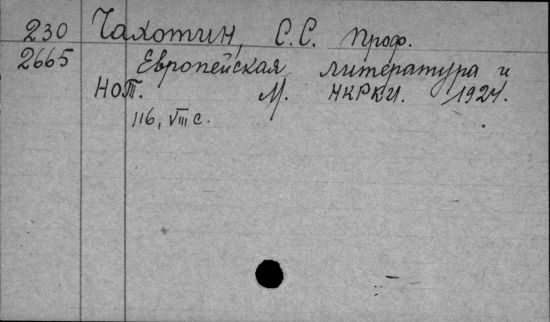 230 Чахотин, С.С. проф.
2665 Европейская литература и
НОТ. М. НКРКИ. 1924.
116, VIII с.